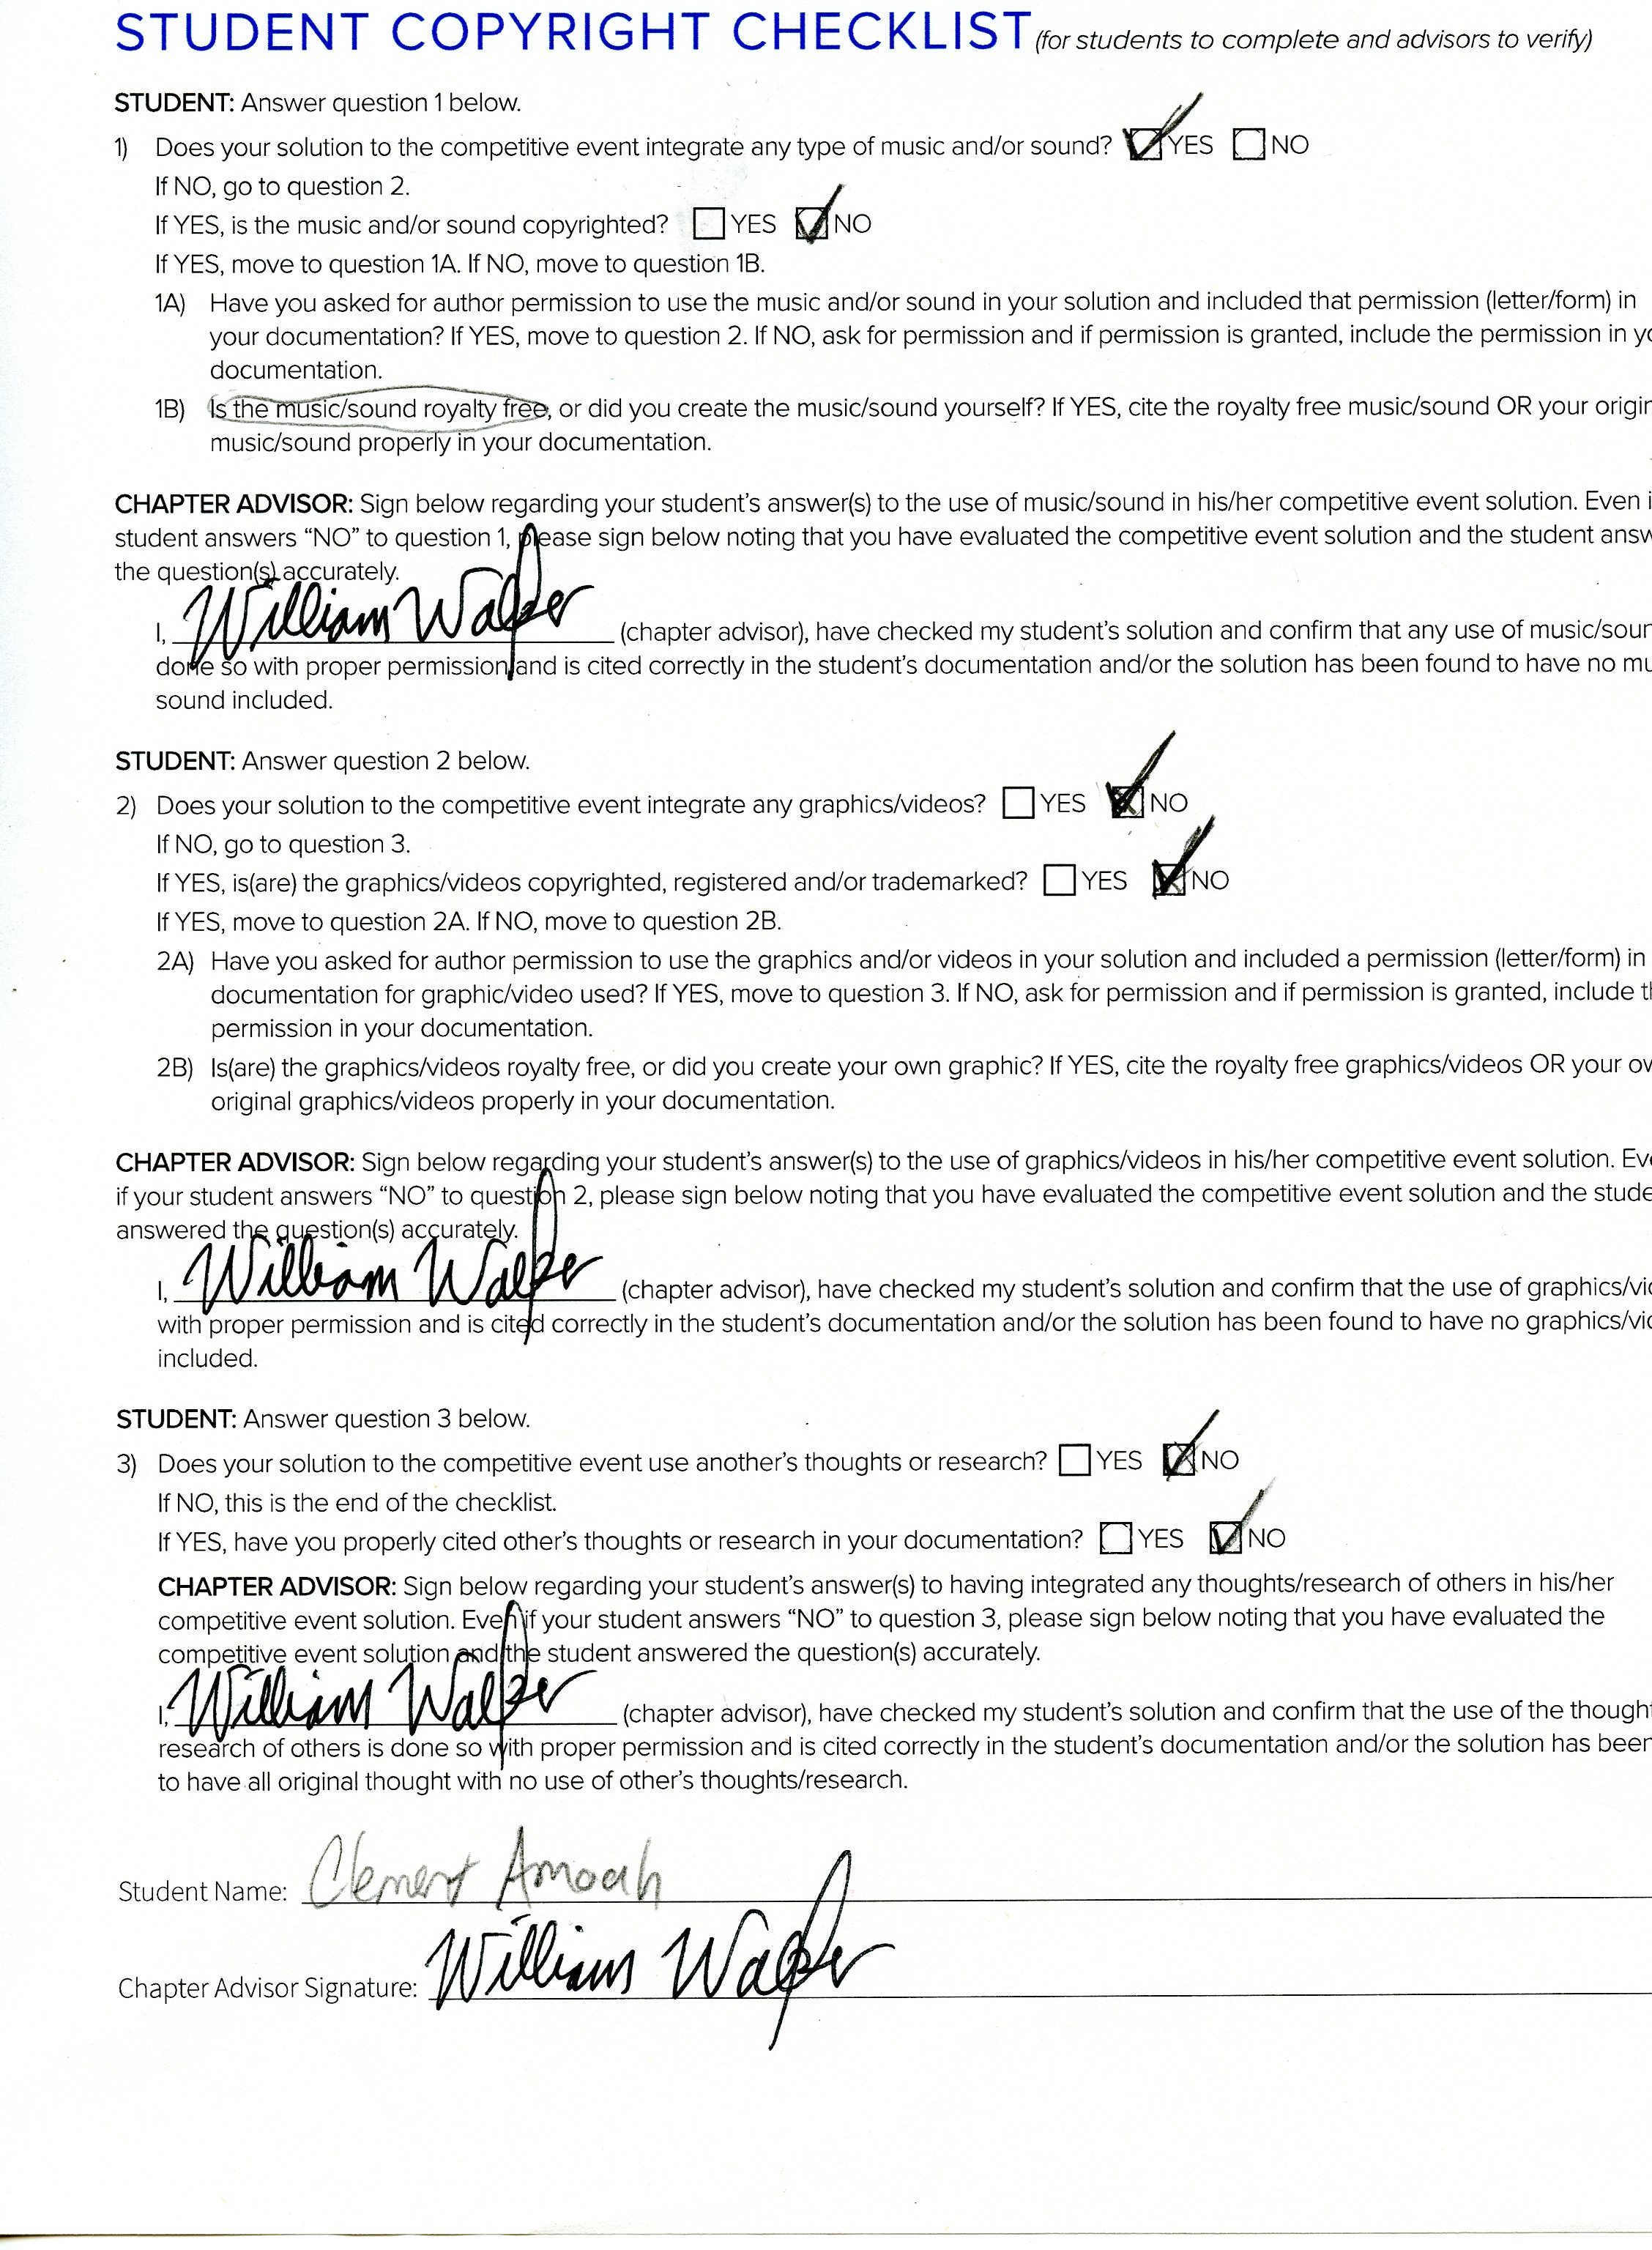 STUDENT COPYRIGHT CHECKLIST (for students to complete and advisors to verify)
STUDENT: Answer question 1 below.
1) Does your solution to the competitive event integrate any type of music and/or sound? YES NO
If NO, go to question 2.
If YES, is the music and/or sound copyrighted? YES NO
If YES, move to question 1A. If NO, move to question 1B.
1A) Have you asked for author permission to use the music and/or sound in your solution and included that permission (letter/form) in
your documentation? If YES, move to question 2. If NO, ask for permission and if permission is granted, include the permission in yo
documentation.
1B) Is the music/sound royalty free, or did you create the music/sound yourself? If YES, cite the royalty free music/sound OR your origin
music/sound properly in your documentation.
CHAPTER ADVISOR: Sign below regarding your student's answer(s) to the use of music/sound in his/her competitive event solution. Even i
student answers "NO" to question 1, please sign below noting that you have evaluated the competitive event solution and the student answ
the question(s) accurately.
I, William Walker (chapter advisor), have checked my student's solution and confirm that any use of music/soun
done so with proper permission and is cited correctly in the student's documentation and/or the solution has been found to have no mu
sound included.
STUDENT: Answer question 2 below.
2) Does your solution to the competitive event integrate any graphics/videos? YES NO
If NO, go to question 3.
If YES, is(are) the graphics/videos copyrighted, registered and/or trademarked? YES NO
If YES, move to question 2A. If NO, move to question 2B.
2A) Have you asked for author permission to use the graphics and/or videos in your solution and included a permission (letter/form) in
documentation for graphic/video used? If YES, move to question 3. If NO, ask for permission and if permission is granted, include th
permission in your documentation.
2B) Is(are) the graphics/videos royalty free, or did you create your own graphic? If YES, cite the royalty free graphics/videos OR your ow
original graphics/videos properly in your documentation.
CHAPTER ADVISOR: Sign below regarding your student's answer(s) to the use of graphics/videos in his/her competitive event solution. Eve
if your student answers "NO" to question 2, please sign below noting that you have evaluated the competitive event solution and the stude
answered the question(s) accurately.
I, William Walker (chapter advisor), have checked my student's solution and confirm that the use of graphics/vid
with proper permission and is cited correctly in the student's documentation and/or the solution has been found to have no graphics/vid
included.
STUDENT: Answer question 3 below.
3) Does your solution to the competitive event use another's thoughts or research? YES NO
If NO, this is the end of the checklist.
If YES, have you properly cited other's thoughts or research in your documentation? YES NO
CHAPTER ADVISOR: Sign below regarding your student's answer(s) to having integrated any thoughts/research of others in his/her
competitive event solution. Even if your student answers "NO" to question 3, please sign below noting that you have evaluated the
competitive event solution and the student answered the question(s) accurately.
I, William Walker (chapter advisor), have checked my student's solution and confirm that the use of the though
research of others is done so with proper permission and is cited correctly in the student's documentation and/or the solution has been
to have all original thought with no use of other's thoughts/research.
Student Name: Clement Amoah
Chapter Advisor Signature: William Walker